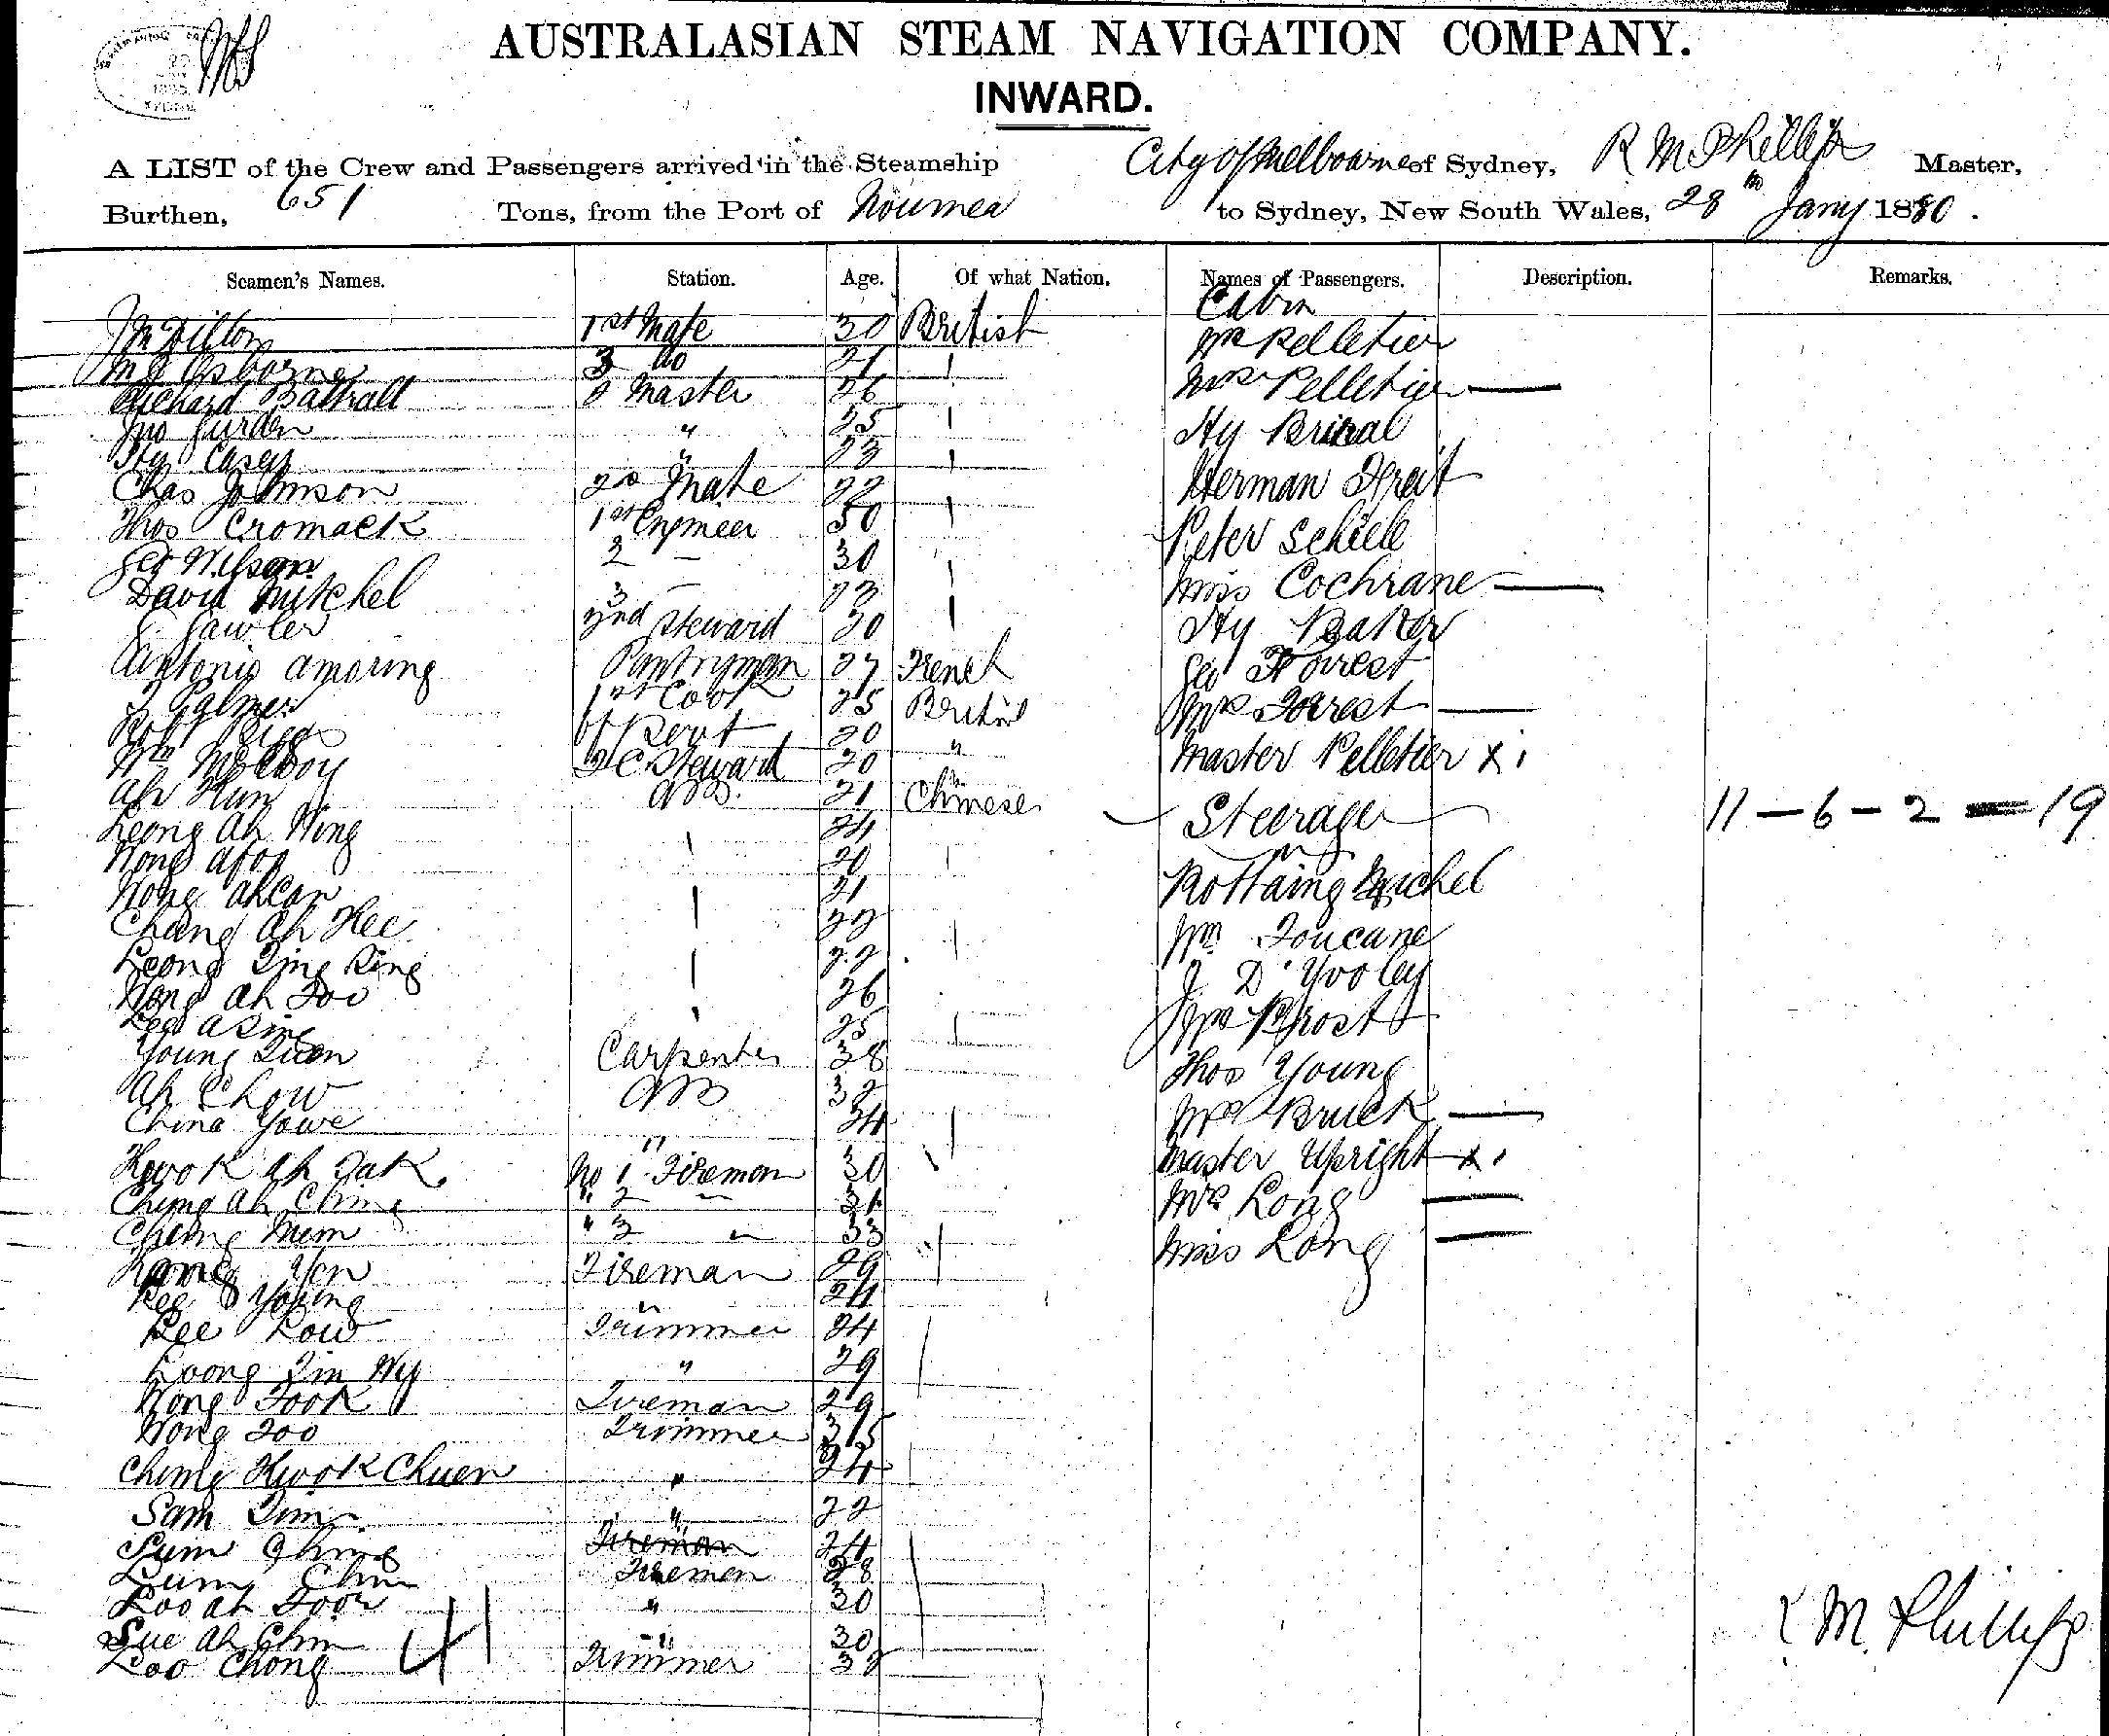 AUSTRALASIAN STEAM NAVIGATION COMPANY.
INWARD.
A LIST of the Crew and Passengers arrived in the Steamship City of Melbourne of Sydney, R M Phillips Master,
Burthen, 651 Tons, from the Port of Noumea to Sydney, New South Wales, 28th Jany 1880.
Seamen's Names. Station. Age. Of what Nation. Names of Passengers. Description. Remarks.
Cabin
1st Mate 30 British Mr Pelletier
Osborne 3 do 21 Mrs Pelletier —
Richard Battrall 2 Master 26
Jno Jurden " 25 Hy
Hy Casey " 23
Chas Johnson 2nd Mate 22 Herman
Thos Cromack 1st Engineer 50 Peter
Geo Wilson 2 — 30 Miss Cochrane —
David Mitchel 3 — 23
J. Lawler 2nd Steward 20 Hy Baker
Antonio Amoring Pantryman 27 French Geo Forrest
J Palmer 1st Cook 25 British Mrs Forrest —
Robt 20 "
Wm McElroy Steward 20 " Master Pelletier x 1
Ah Hun AB. 21 Chinese
Leong Ah Wing 24 Steerage 11 — 6 — 2 = 19
Wong Afoo 20
Wong Ahcan 21 Michel
Chang Ah Hee 22
Leong Ting King 22 Wm Toucane
Wong Ah Foo 26 J D'
Lee Asing 25 Prost
Young Quon Carpenter 38
Ah Chow AB 32 Thos Young
China Yowe 24 Mrs Bruck —
Kwok Ah Tak " No 1 Fireman 30 Master Upright x 1
Chung Ah Ching " 2 " 31 Mrs Long —
Cheong Mun " 3 " 33 Miss Long —
Yen Fireman 29
Lee Young " 24
Lee Low Trimmer 24
Loong Tin Wy " 29
Wong Fook Fireman 29
Wong Foo Trimmer
Ching Kwok Chuen " 24
Sam Tim " 22
Sum Ching Fireman 24
Lum Chin Fireman 28
Loo Ah Foon " 30
Sue Ah Chin " 30
Loo Chong Trimmer 32
41
R M Phillips